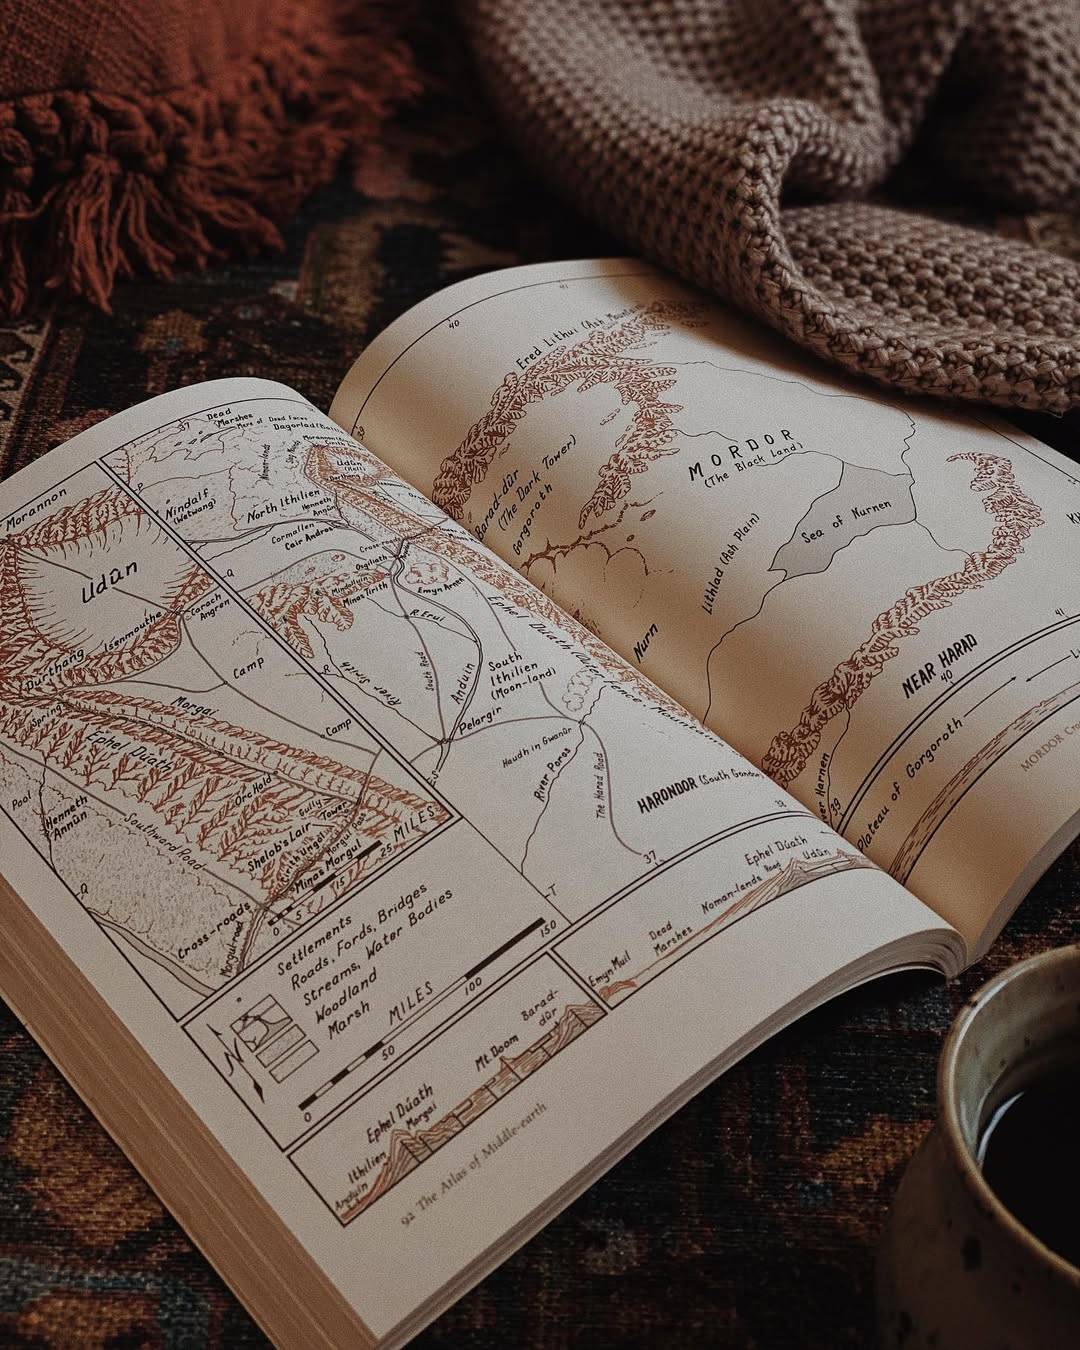 Morannon
Udûn
Isenmouthe
Carach
Angren
Durthang
Camp
Spring
Morgai
Camp
Ephel Dúath
Orc Hold
Pool
Henneth
Annûn
Southward Road
Gully
Tower
Shelob's Lair
Cirith Ungol
Morgul Pass
Minas Morgul
Cross-roads
Morgulroad
0 5 15 25 MILES
37
Dead
Marshes
Mere of Dead Faces
Dagorlad
Nindalf
(Wetwang)
Udûn
North Ithilien
Henneth
Annûn
Cormallen
Cair Andros
Osgiliath
Mindolluin
Minas Tirith
Emyn Arnen
R. Erui
River Sirith
South Road
Anduin
South
Ithilien
(Moon-land)
Ephel Dúath
Pelargir
Haudh in Gwanûr
River Poros
The Harad Road
HARONDOR (South Gondor)
37
38
Q
R
S
T
P
Q
Settlements
Roads, Fords, Bridges
Streams, Water Bodies
Woodland
Marsh
N
MILES
0 50 100 150
Anduin
Ithilien
Ephel Dúath
Morgai
Mt. Doom
Barad-
dûr
Emyn Muil
Dead
Marshes
Noman-lands
Road
Ephel Dúath
Udûn
92 The Atlas of Middle-earth
39
40
41
Ered Lithui (Ash Mount
Barad-dûr
(The Dark Tower)
Gorgoroth
MORDOR
(The Black Land)
Sea of Nurnen
Lithlad (Ash Plain)
Nurn
NEAR HARAD
40
41
er Harnen
39
Plateau of Gorgoroth
MORDOR